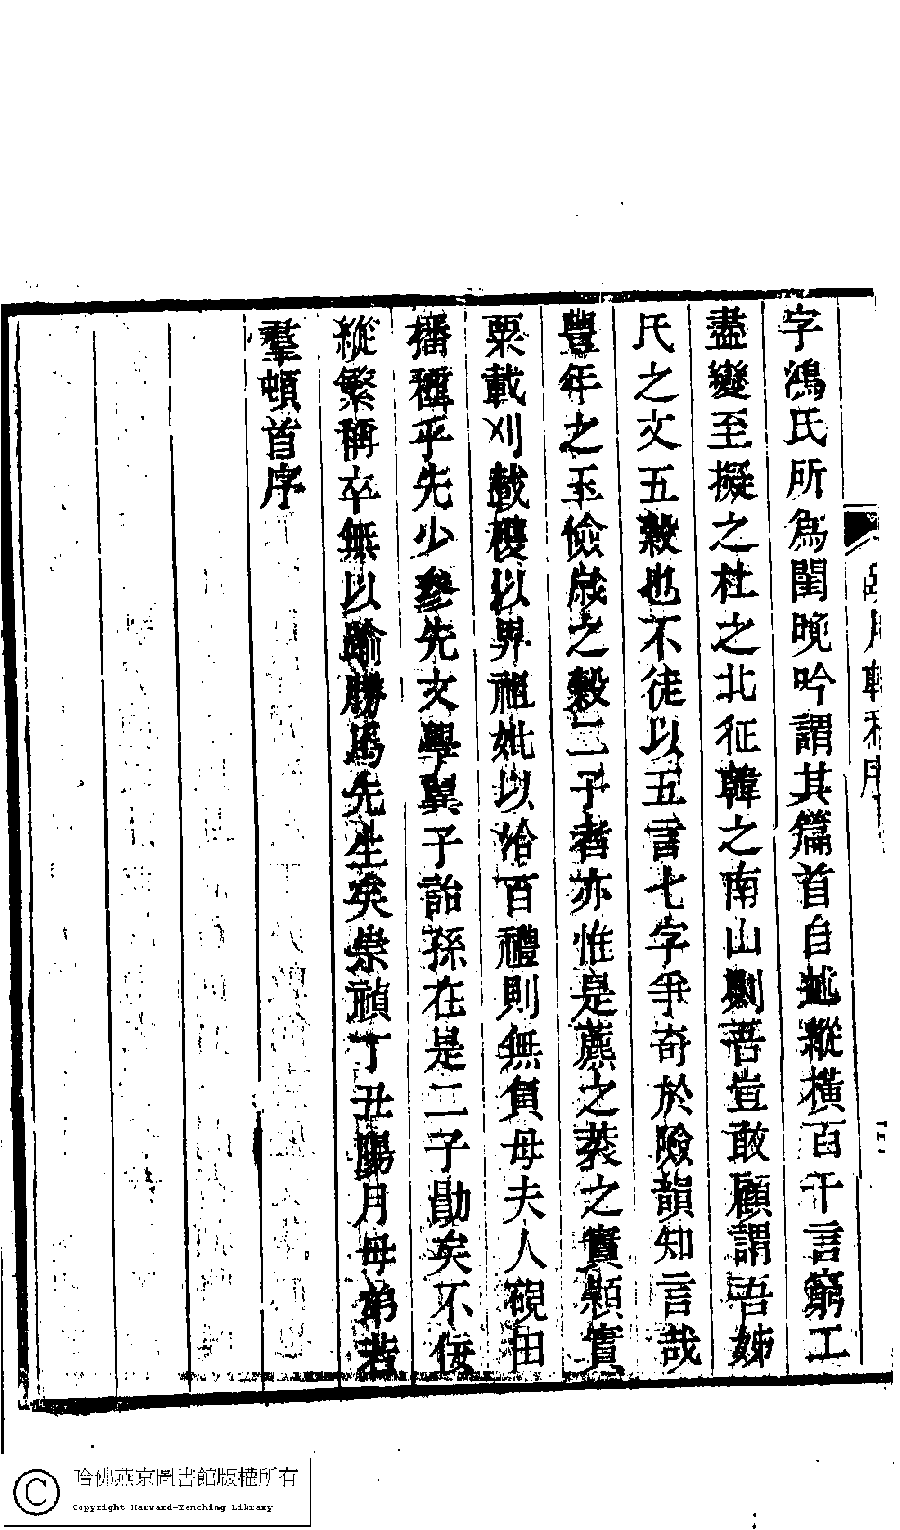 字鴻氏所為閨晚吟謂其篇首自述縱橫百千言窮工
盡變至擬之杜之北征韓之南山劇菩豈敢顧謂吾姊
氏之文五穀也不徒以五言七字爭奇於險韻知言哉
豐年之玉儉歲之穀二子者亦惟是藨之蓘之實穎實
粟載刈載穫以畀祖妣以洽百禮則無負母夫人硯田
播種乎先少參先文學翼子詒孫在是二子勖矣不佞
縱繁稱卒無以踰勝為先生矣崇禎丁丑陽月母弟若
羣頓首序
哈佛燕京圖書館版權所有
Copyright Harvard-Yenching Library